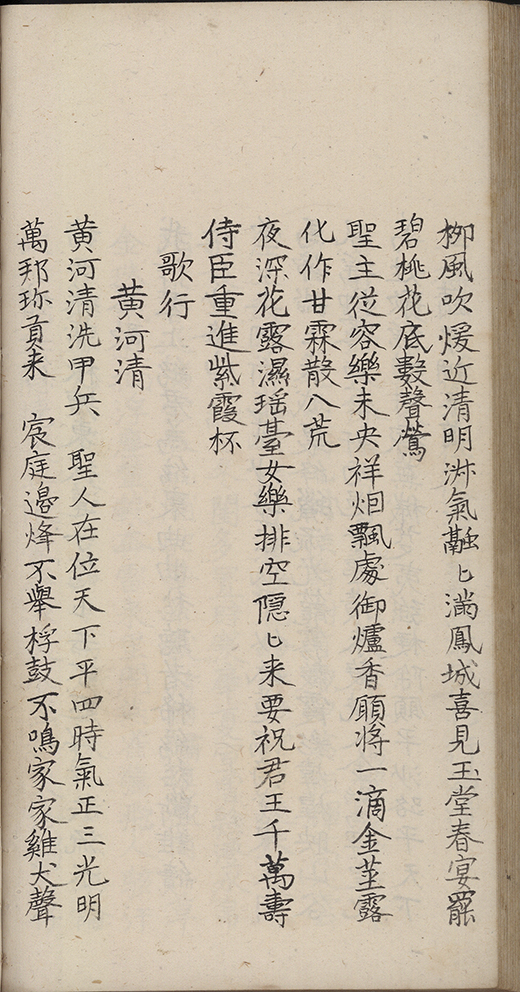 柳風吹煖近清明淑氣融〻滿鳳城喜見玉堂春宴罷
碧桃花底數聲鶯
聖主從容樂未央祥烟飄處御爐香願將一滴金莖露
化作甘霖散八荒
夜深花露濕瑶臺女樂排空隐〻来要祝君王千萬壽
侍臣重進紫霞杯
歌行
黄河清
黄河清洗甲兵 聖人在位天下平四時氣正三光明
萬邦珎貢来 宸庭邉烽不舉桴鼓不鳴家家雞犬聲